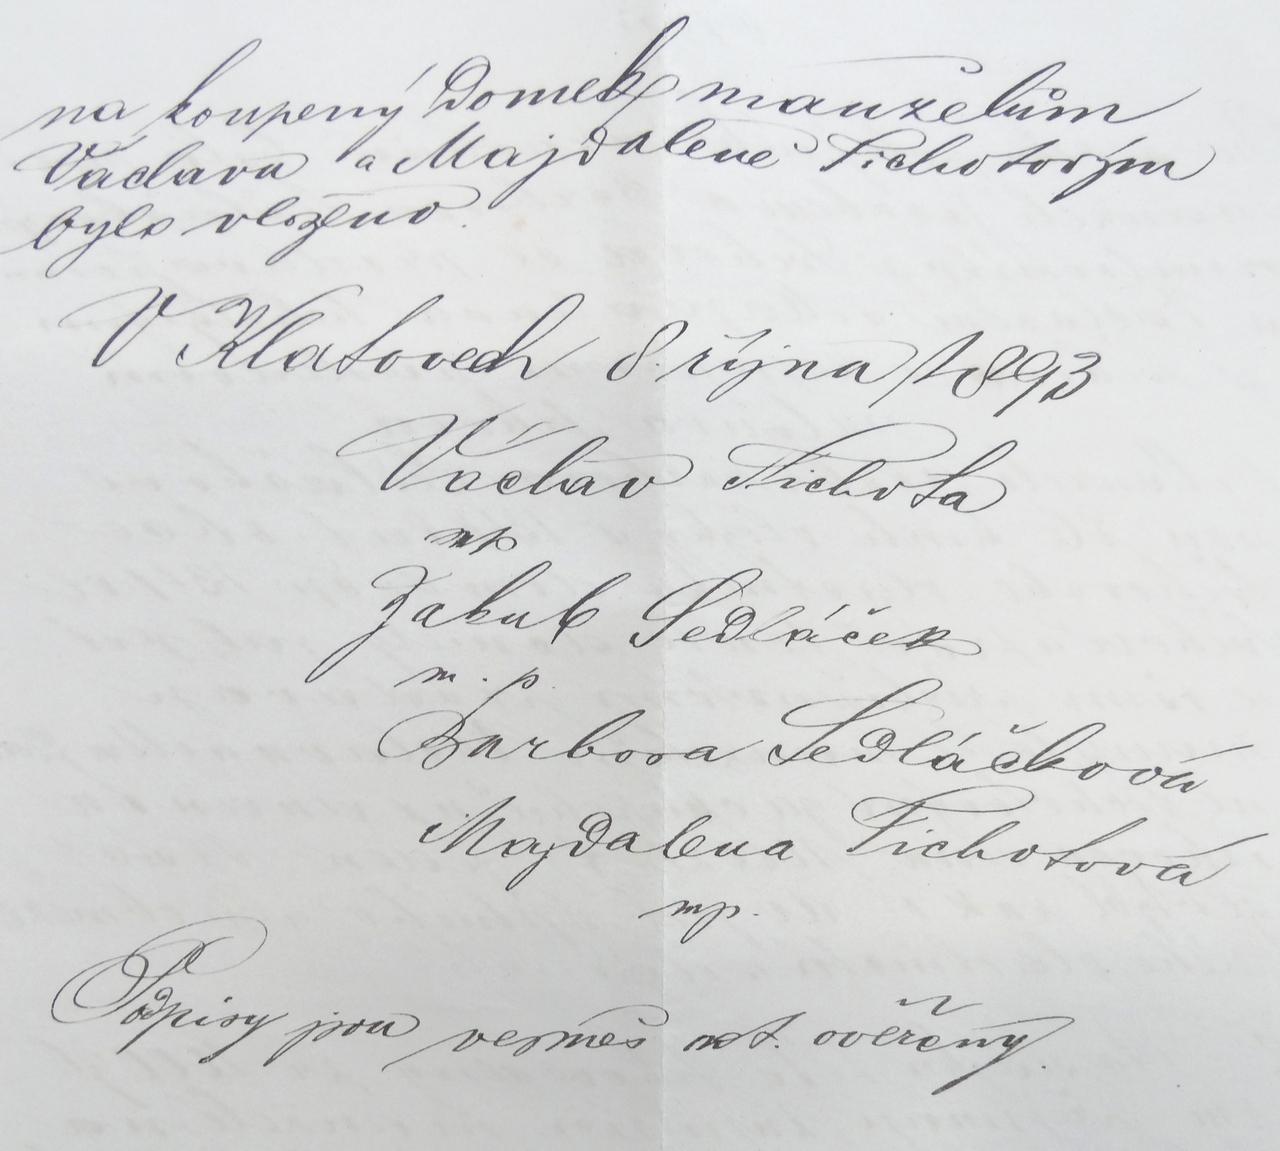 na koupený domek manželům
Václavu a Majdaleně Tichotovým
bylo vloženo.
V Klatovech 8. října 1893
Václav Tichota
mp
Jakub Sedláček
m. p.
Barbora Sedláčková
Majdalena Tichotová
mp.
Podpisy jsou vesměs not. ověřeny.